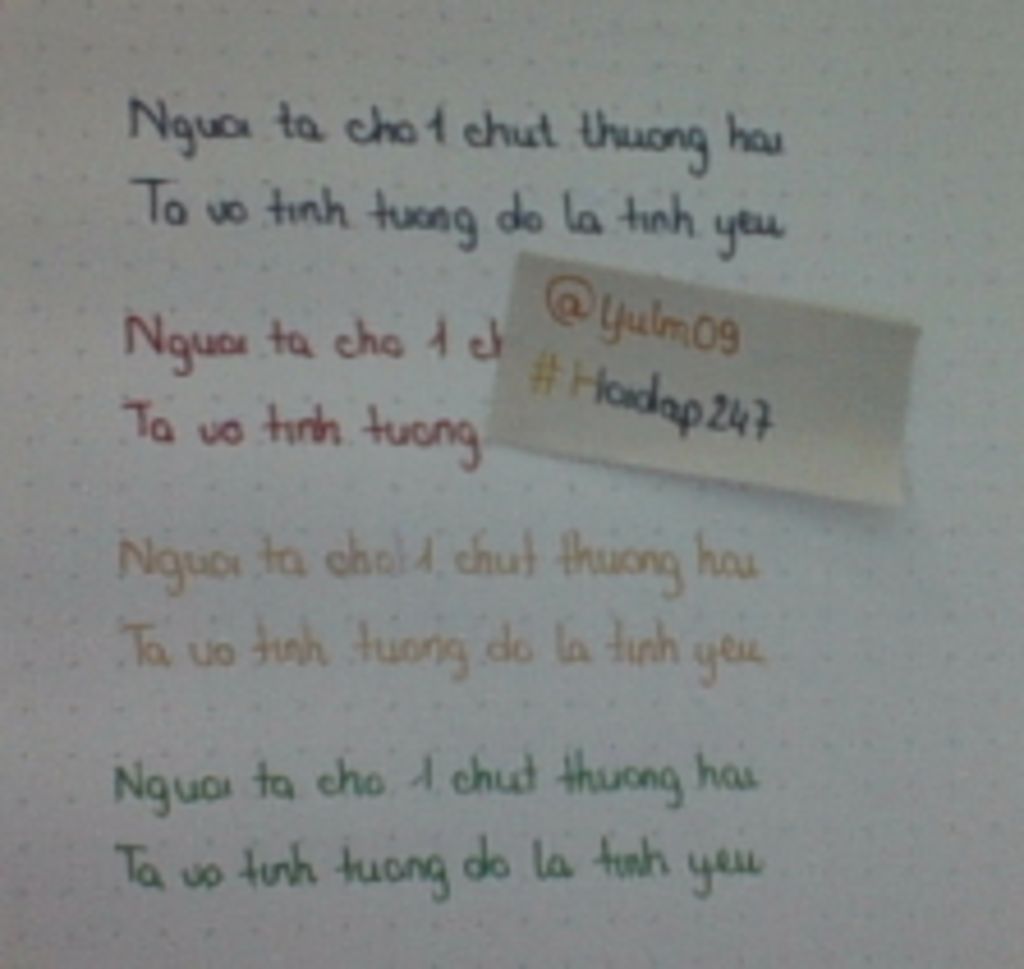 Nguoi ta cho 1 chut thuong hai
Ta vo tinh tuong do la tinh yeu
Nguoi ta cho 1 ch
Ta vo tinh tuong
@yulm09
#Hoidap247
Nguoi ta cho 1 chut thuong hai
Ta vo tinh tuong do la tinh yeu
Nguoi ta cho 1 chut thuong hai
Ta vo tinh tuong do la tinh yeu